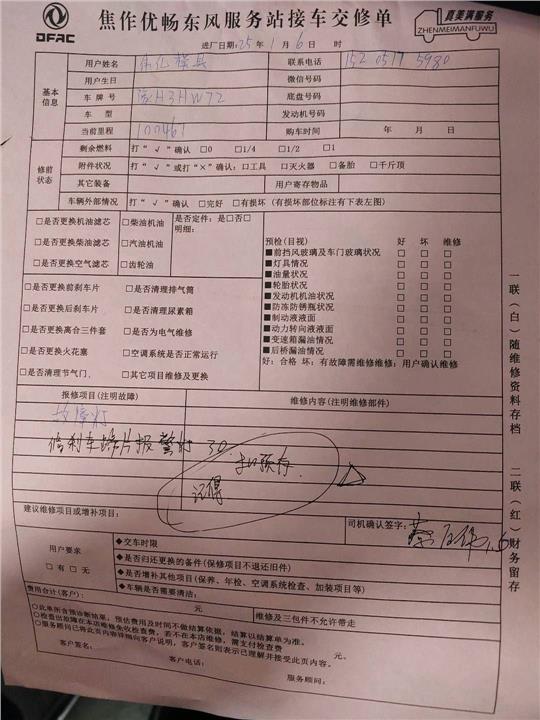 DFAC
焦作优畅东风服务站接车交修单
真美满服务
ZHENMEIMANFUWU
进厂日期:25年1月6日 时
基本信息
用户姓名
联系电话 152 0517 5980
用户生日
微信号码
车牌号 豫H3HW72
底盘号码
车型
发动机号码
当前里程 100461
购车时间 年 月 日
修前状态
剩余燃料 打“√”确认 □0 □1/4 □1/2 □1
附件状况 打“√”或打“×”确认:□工具 □灭火器 □备胎 □千斤顶
其它装备
用户寄存物品
车辆外部情况 打“√”确认 □完好 □有损坏(有损坏部位标注有下表左图)
□是否更换机油滤芯 □柴油机油 是否定件:是□否□
明细:
□是否更换柴油滤芯 □汽油机油
□是否更换空气滤芯 □齿轮油
□是否更换前刹车片 □是否清理排气筒
□是否更换后刹车片 □是否清理尿素箱
□是否更换离合三件套 □是否为电气维修
□是否更换火花塞 □空调系统是否正常运行
□是否清理节气门、 □其它项目维修及更换
预检(目视) 好 坏 维修
■前挡风玻璃及车门玻璃状况 □ □ □
■灯具情况 □ □ □
■油量状况 □ □ □
■轮胎状况 □ □ □
■发动机机油状况 □ □ □
■防冻防锈瓶状况 □ □ □
■制动液液面 □ □ □
■动力转向液液面 □ □ □
■变速箱漏油情况 □ □ □
■后桥漏油情况 □ □ □
好:合格 坏:有故障需维修维修:用户确认维修
报修项目(注明故障)
维修内容(注明维修部件)
故障灯
修刹车蹄片报警灯 30
扣预存
记得
建议维修项目或增补项目:
司机确认签字:
用户要求
□有□无
◆交车时限
◆是否归还更换的备件(保修项目不退还旧件)
◆是否增补其他项目(保养、年检、空调系统检查、加装项目等)
◆车辆是否需要清洁:
费用合计(客户): 元
维修及三包件不允许带走
○此单所含预诊断结果,预估费用及时间不做结算依据,结算以结算单为准。
○检查出故障在本店维修免收检查费,若不在本店维修,需支付检查费 元。
○服务顾问已将此页内容详细向客户说明,客户签名则表示已理解并接受此页内容。
客户签名: 客户电话: 服务顾问:
一联(白)随维修资料存档
二联(红)财务留存